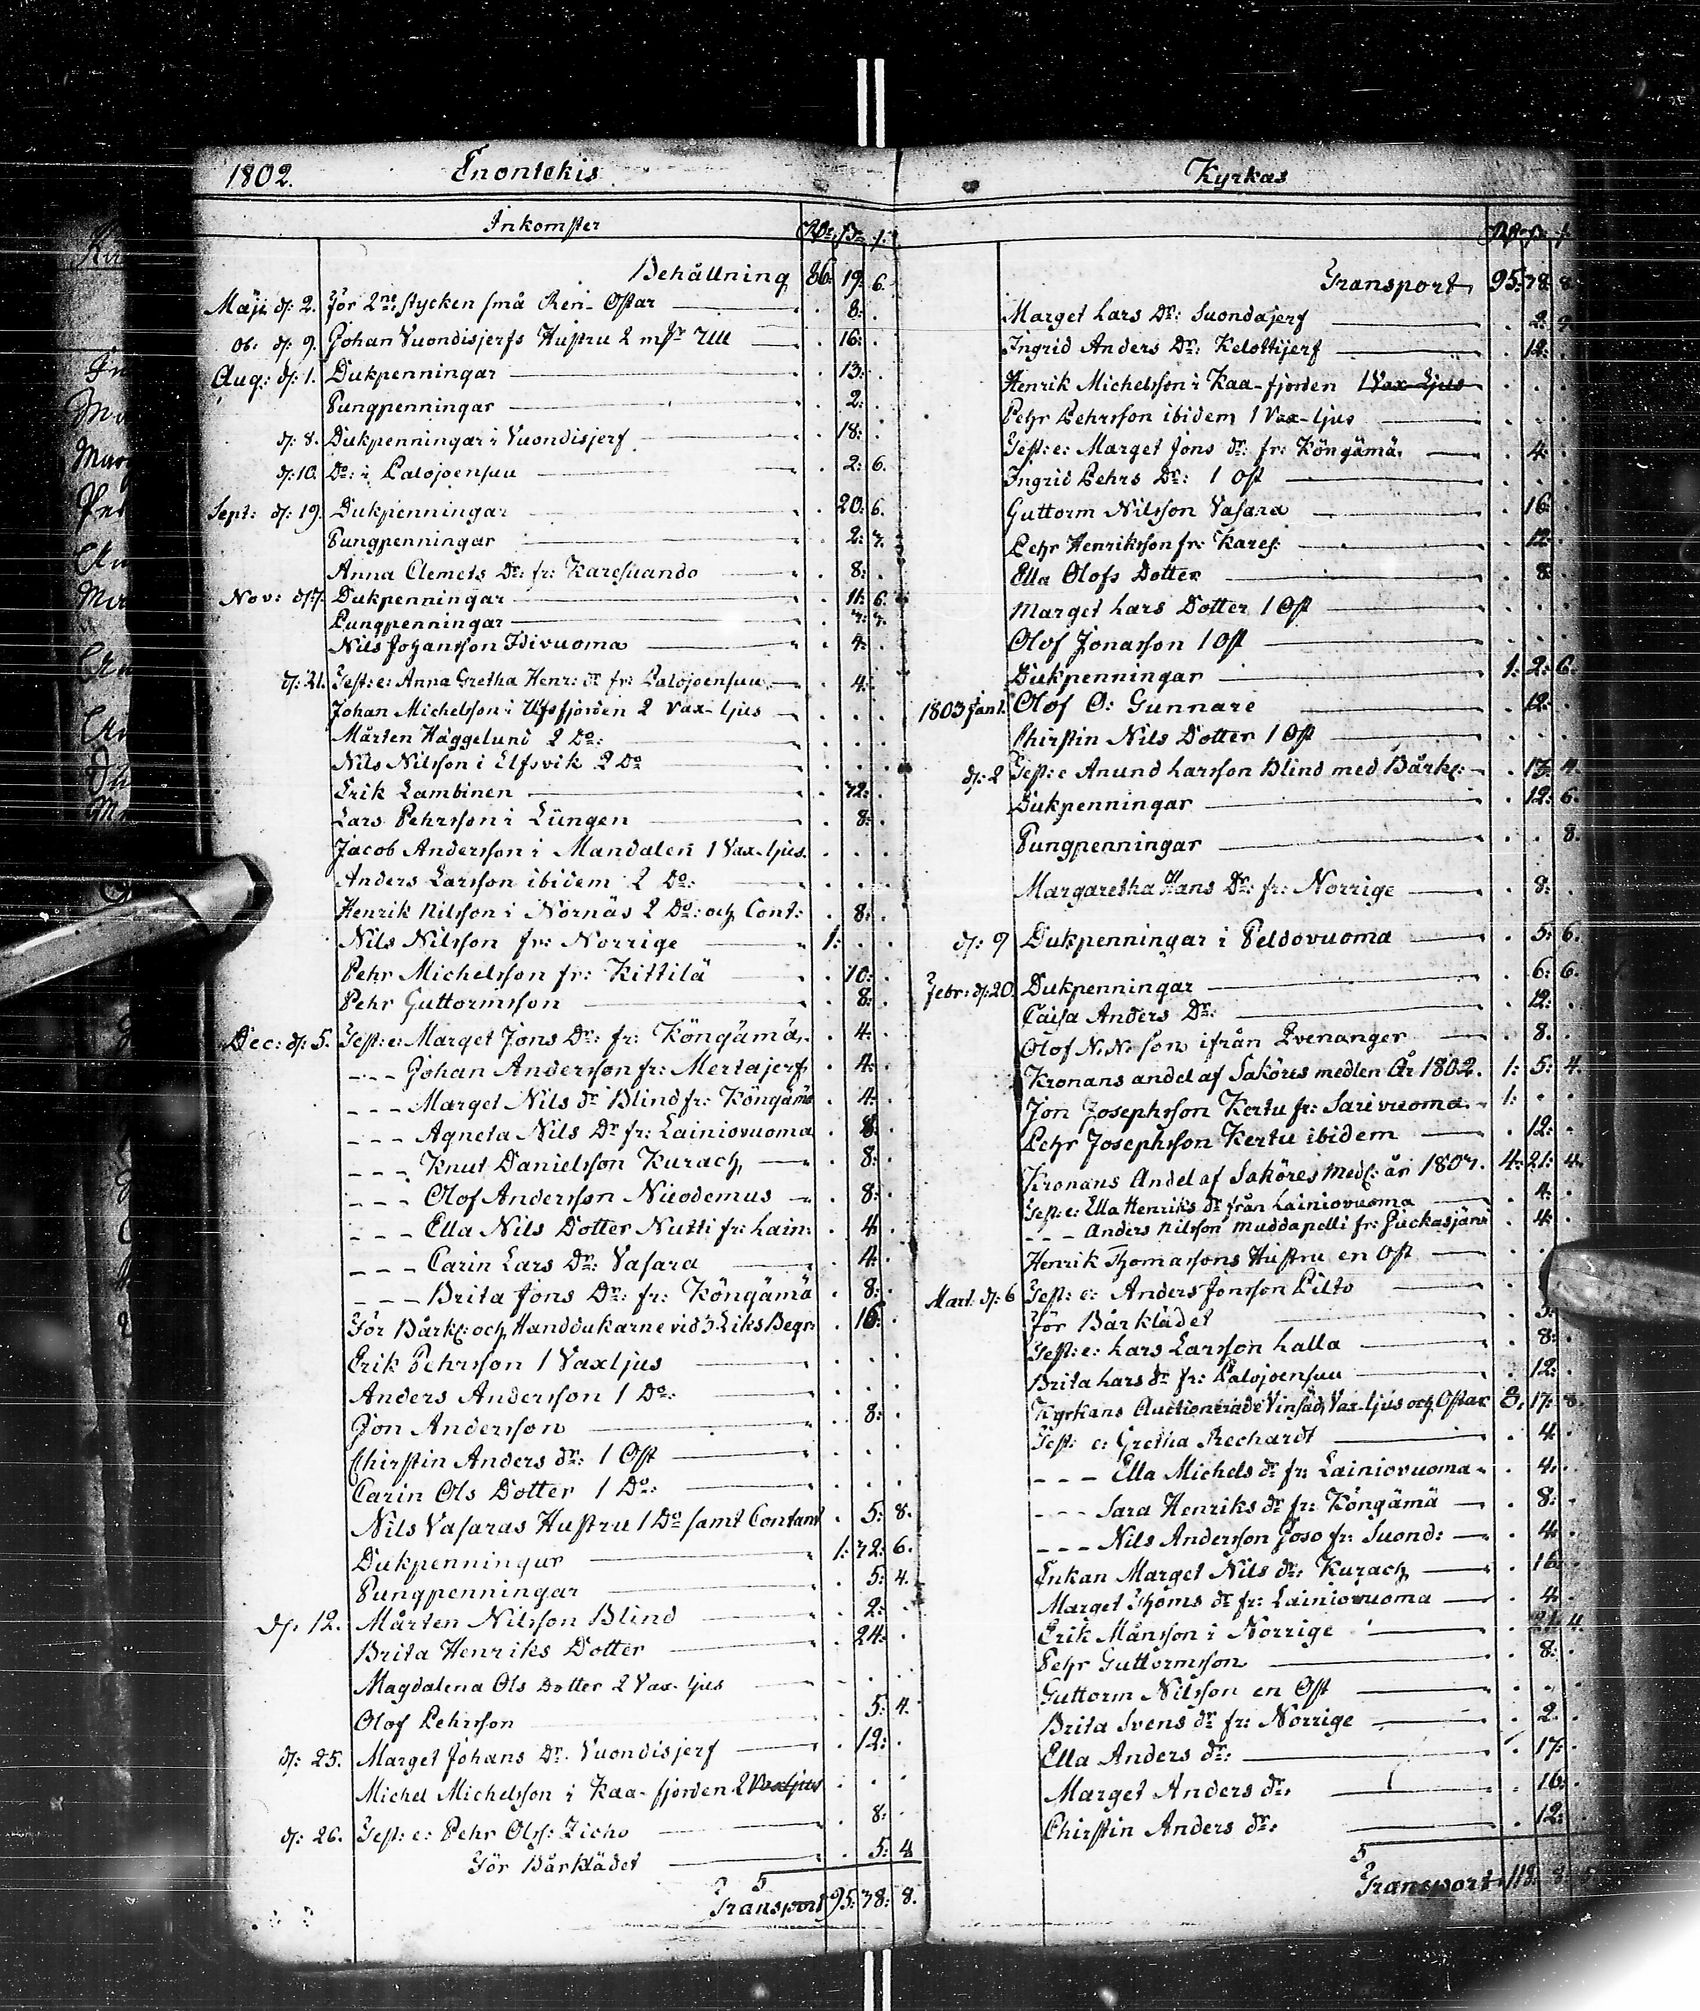 1802. Enontekis
Inkomster Rdr sr r.
Behållning 86: 19: 6.
Maji d: 2. För 2ne stycken små Ren-Ostar . 8: .
d: 9. Johan Vuondisjerfs Hustru 2 Ull . 16: .
Aug: d: 1. Dukpenningar . 13: .
Pungpenningar . 2: .
d: 8. Dukpenningar i Vuondisjerf . 18: .
d: 10. Do: i Palojoensuu . 2: 6.
Sept: d: 19. Dukpenningar . 20: 6.
Pungpenningar . 2:
Anna Clemets Dr: fr: Karesuando . 8: .
Nov: Dukpenningar . 11: 6.
Pungpenningar
Nils Johansson Idivuoma . 4: .
d: 21. Test: e: Anna Gretha Henr: dr fr: Palojoensuu . 4: .
Johan Michelsson i Ulfsfjorden 2 Vax-ljus . . .
Mårten Häggelund 2 Do: . . .
Nils Nilsson i Elfsvik 2 Do . . .
Erik Lambinen . 12: .
Lars Pehrsson i Lüngen . 8: .
Jacob Andersson i Mandalen 1 Vax-ljus. . . .
Anders Larsson ibidem 2 Do: . . .
Henrik Nilsson i Nornäs 2 Do: och Cont: . 8: .
Nils Nilsson fr: Norrige 1: . .
Pehr Michelsson fr: Kittilä . 10: .
Pehr Guttormsson . 8: .
Dec: d: 5. Test: e: Marget Jons Dr: fr: Köngämä . 4: .
- - - Johan Andersson fr: Mertajerf . 4: .
- - - Marget Nils dr Blind fr: Köngämä . 4: .
- - - Agneta Nils Dr fr: Lainiovuoma . 8: .
- - - Knut Danielsson Kurach . 8: .
- - - Olof Andersson Nicodemus . 8: .
- - - Ella Nils Dotter Nutti fr: Lain: . 4: .
- - - Carin Lars Dr: Vasara . 4: .
- - - Brita Jons Dr: fr: Köngämä . 8: .
För Bårkl: och Handdukarne vid 3 Liks Begr: . 16: .
Erik Pehrsson 1 Vaxljus . . .
Anders Andersson 1 Do: . . .
Jon Andersson . 8: .
Chirstin Anders dr: 1 Ost . . .
Carin Ols Dotter 1 Do: . . .
Nils Vasaras Hustru 1 Do samt Contant . 5: 8.
Dukpenningar 1: 12: 6.
Pungpenningar . 5: 4.
d: 12. Mårten Nilsson Blind . 2: .
Brita Henriks Dotter . 24: .
Magdalena Ols Dotter 2 Vax-ljus . . .
Olof Pehrsson . 5: 4.
d: 25. Marget Johans Dr. Vuondisjerf . 12: .
Michel Michelsson i Kaa-fjorden 2 Vaxljus . . .
d: 26. Test: e: Pehr Olss: . 8: .
För Bårklädet . 5: 4
Transport 95: 38: 8.
Kyrkas
Transport 95: 38: 8.
Marget Lars Dr: Suondajerf . 2:
Ingrid Anders Dr: Kelottijerf . 12: .
Henrik Michelsson i Kaa-fjorden 1 Vax-Ljus . . .
Pehr Pehrsson ibidem 1 Vax-ljus . . .
Test: e: Marget Jons dr: fr: Köngämä . 4: .
Ingrid Pehrs Dr: 1 Ost . . .
Guttorm Nilsson Vasara . 16: .
Pehr Henriksson fr: Kares: . 12: .
Ella Olofs Dotter . 8: .
Marget Lars Dotter 1 Ost . . .
Olof Jonasson 1 Ost . . .
Dukpenningar 1: 2: 6.
1803 Jan 1. Olof O: Gunnare . 12: .
Chirstin Nils Dotter 1 Ost . . .
d: 2 Test: e Anund Larsson Blind med Bårkl: . 13: 4.
Dukpenningar . 12: 6.
Pungpenningar . . 8.
Margaretha Hans Dr: fr: Norrige . 8: .
d: 9 Dukpenningar i Peldovuoma . 5: 6.
Febr: d: 20. Dukpenningar . 6: 6.
Caisa Anders Dr: . 12: .
Olof N. N. son ifrån Qvenanger . 8: .
Kronans andel af Saköres medlen År 1802. 1: 5: 4.
Jon Josephsson Kertu fr: Sarivuoma 1: . .
Pehr Josephsson Kertu ibidem . 12: .
Kronans Andel af Saköres Medl: år 4: 21: 4.
Test: e: Ella Henriks dr från Lainiovuoma . 4: .
- - - Anders Nilsson Muddapelli fr: Juckasjärvi . 4: .
Henrik Thomassons Hustru en Ost . .
Mart: d: 6 Test: e: Anders Jonsson Pilto
För Bårklädet
Test: e: Lars Larsson Lalla . 8: .
Brita Lars dr fr: Palojoensuu . 12: .
Kyrkans Auctionerade Vinsäd, Vax-ljus och Ostar 8: 17: 8.
Test: e: Gretha Rechardt . 4: .
- - - Ella Michels dr fr: Lainiovuoma . 4: .
- - - Sara Henriks dr fr: Köngämä . 8: .
- - - Nils Andersson Joso fr: Suond: . 4: .
Enkan Marget Nils dr: Kurach . 16: .
Marget Thoms dr fr: Lainiovuoma . 4: .
Erik Månsson i Norrige . 21: 4.
Pehr Guttormsson . 8: .
Guttorm Nilsson en Ost . . .
Brita Svens dr fr: Norrige . 2. .
Ella Anders dr: . 17: .
Marget Anders dr: . 16: .
Chirstin Anders dr: . 12: .
Transport 118: 8: